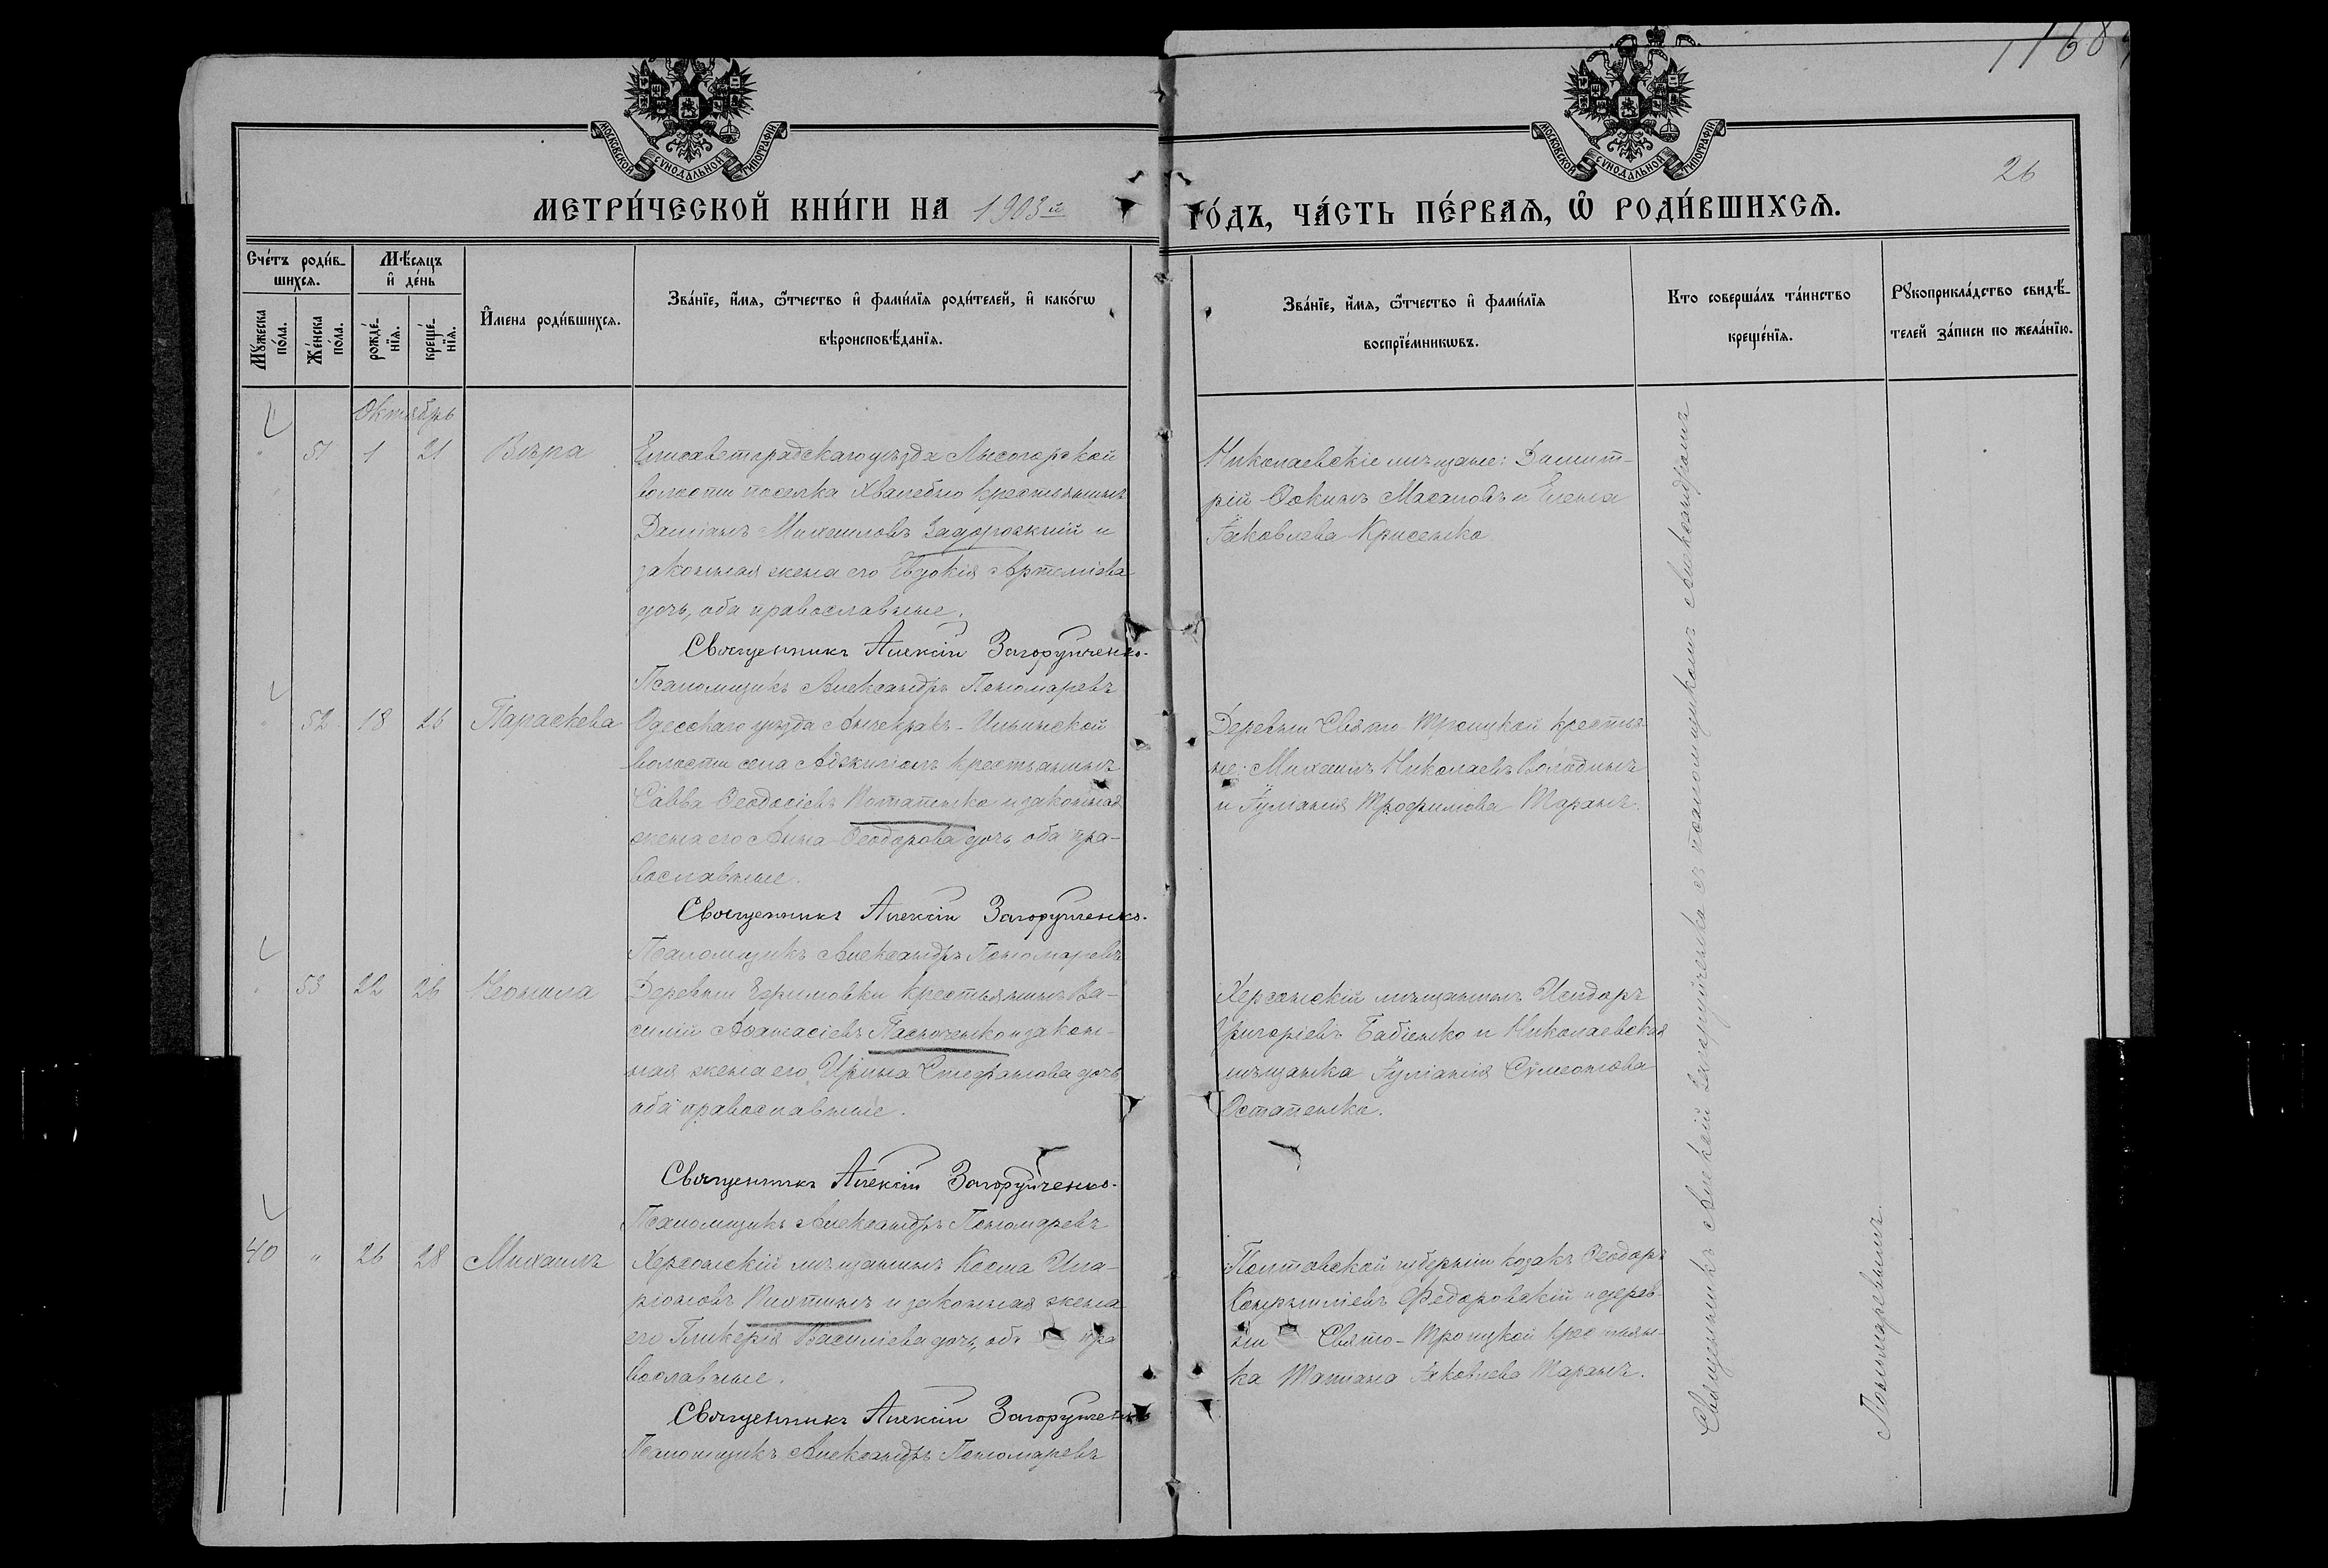 1168
МОСКОВСКОЙ СѴНОДАЛЬНОЙ ТИПОГРАФІИ
МОСКОВСКОЙ СѴНОДАЛЬНОЙ ТИПОГРАФІИ
26
МЕТРИ́ЧЕСКОЙ КНИ́ГИ НА 1903й
ГО́ДЪ, ЧА́СТЬ ПЕ́РВАѦ, Ѡ РОДИ́ВШИХСѦ.
Сче́тъ роди́в-
шихсѧ.
Мꙋ́жеска
по́ла.
Же́нска
по́ла.
Мѣ́сѧцъ
и҆ де́нь
рожде́-
нїѧ.
креще́-
нїѧ.
И҆́мена роди́вшихсѧ.
Зва́нїе, и҆́мѧ, ѻ҆́тчество и҆ фами́лїѧ роди́телей, и҆ како́гѡ
вѣроисповѣ́данїѧ.
Зва́нїе, и҆́мѧ, ѻ҆́тчество и҆ фами́лїѧ
воспрїе́мникѡвъ.
Кто соверша́лъ та́инство
креще́нїѧ.
Рꙋкоприкла́дство свидѣ́-
телей за́писи по жела́нїю.
Октябрь
51 1 21 Вѣра
Елисаветградскаго уѣзда Лысогорской
волости поселка Хвалебно крестьянинъ
Даміанъ Михаиловъ Задорожній и
законная жена его Евдокія Артеміева
дочь, оба православные.
Священникъ Алексій Загоруйченко.
Псаломщикъ Александръ Пономаревъ
Николаевскіе мѣщане: Димит-
рій Фокинъ Масаловъ и Елена
Іаковлева Крисенко
52 18 26 Параскева
Одесскаго уѣзда Анчекракъ-Ильинской
волости села Аджиголъ крестьянинъ
Савва Ѳеодосіевъ Потапенко и законная
жена его Анна Ѳеодорова дочь, оба пра-
вославные.
Священникъ Алексій Загоруйченко.
Псаломщикъ Александръ Пономаревъ
Деревни Свято Троицкой крестья-
не: Михаилъ Николаевъ Володинъ
и Іуліанія Трофимова Таранъ.
53 22 26 Неонила
Деревни Ефимовки крестьянинъ Ва-
силій Аѳанасіевъ и закон-
ная жена его Ирина Стефанова дочь
оба православные.
Священникъ Алексій Загоруйченко.
Псаломщикъ Александръ Пономаревъ
Херсонскій мѣщанинъ Исидоръ
Григоріевъ Бабіенко и Николаевская
мѣщанка Іуліанія Сѵмеонова
Остапенко.
40 " 26 28 Михаилъ
Херсонскій мѣщанинъ Косма Ила-
ріоновъ и законная жена
его Гликерія Василіева дочь, оба пра
вославные.
Священникъ Алексій Загоруйченко
Псаломщикъ Александръ Пономаревъ
Полтавской губерніи козакъ Ѳеодоръ
Корниліевъ Федоровскій и дерев-
ни Свято-Троицкой крестьян-
ка Татіана Іаковлева Таранъ.
Священникъ Алексій Загоруйченко съ псаломщикомъ Александромъ
Пономаревымъ.